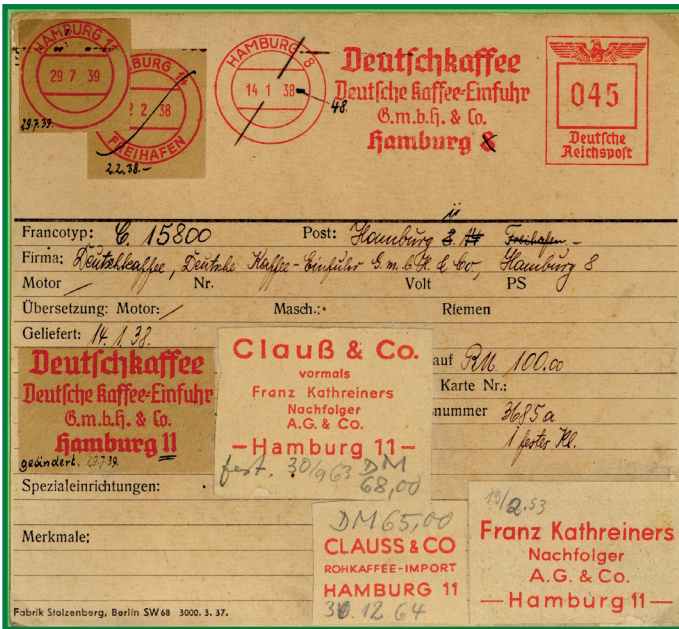 HAMBURG 14
29 7 39
29.7.39.
BURG 14
2 2 38
FREIHAFEN
2.2.38.-
HAMBURG 8
14 1 38
48.
Deutschkaffee
Deutsche Kaffee-Einfuhr
G.m.b.H. & Co.
Hamburg 8
045
Deutsche
Reichspost
Francotyp: C. 15800 Post: Hamburg 8 14 Freihafen,-
11
Firma: Deutschkaffee, Deutsche Kaffee-Einfuhr G.m.b.H. & Co, Hamburg 8
Motor / Nr. Volt PS
Übersetzung: Motor: / Masch.: Riemen
Geliefert: 14.1.38.
auf RM 100.00
Karte Nr.:
nummer 3685a
1 fester Kl.
Deutschkaffee
Deutsche Kaffee-Einfuhr
G.m.b.H. & Co.
Hamburg 11
geändert. 29.7.39.
Clauß & Co.
vormals
Franz Kathreiners
Nachfolger
A.G. & Co.
—Hamburg 11—
fest. 30/9 63 DM
68,00
Spezialeinrichtungen:
Merkmale:
DM 65,00
CLAUSS & CO
ROHKAFFEE-IMPORT
HAMBURG 11
31.12 64
19/2.53
Franz Kathreiners
Nachfolger
A.G. & Co.
—Hamburg 11—
Fabrik Stolzenberg, Berlin SW 68 3000. 3. 37.